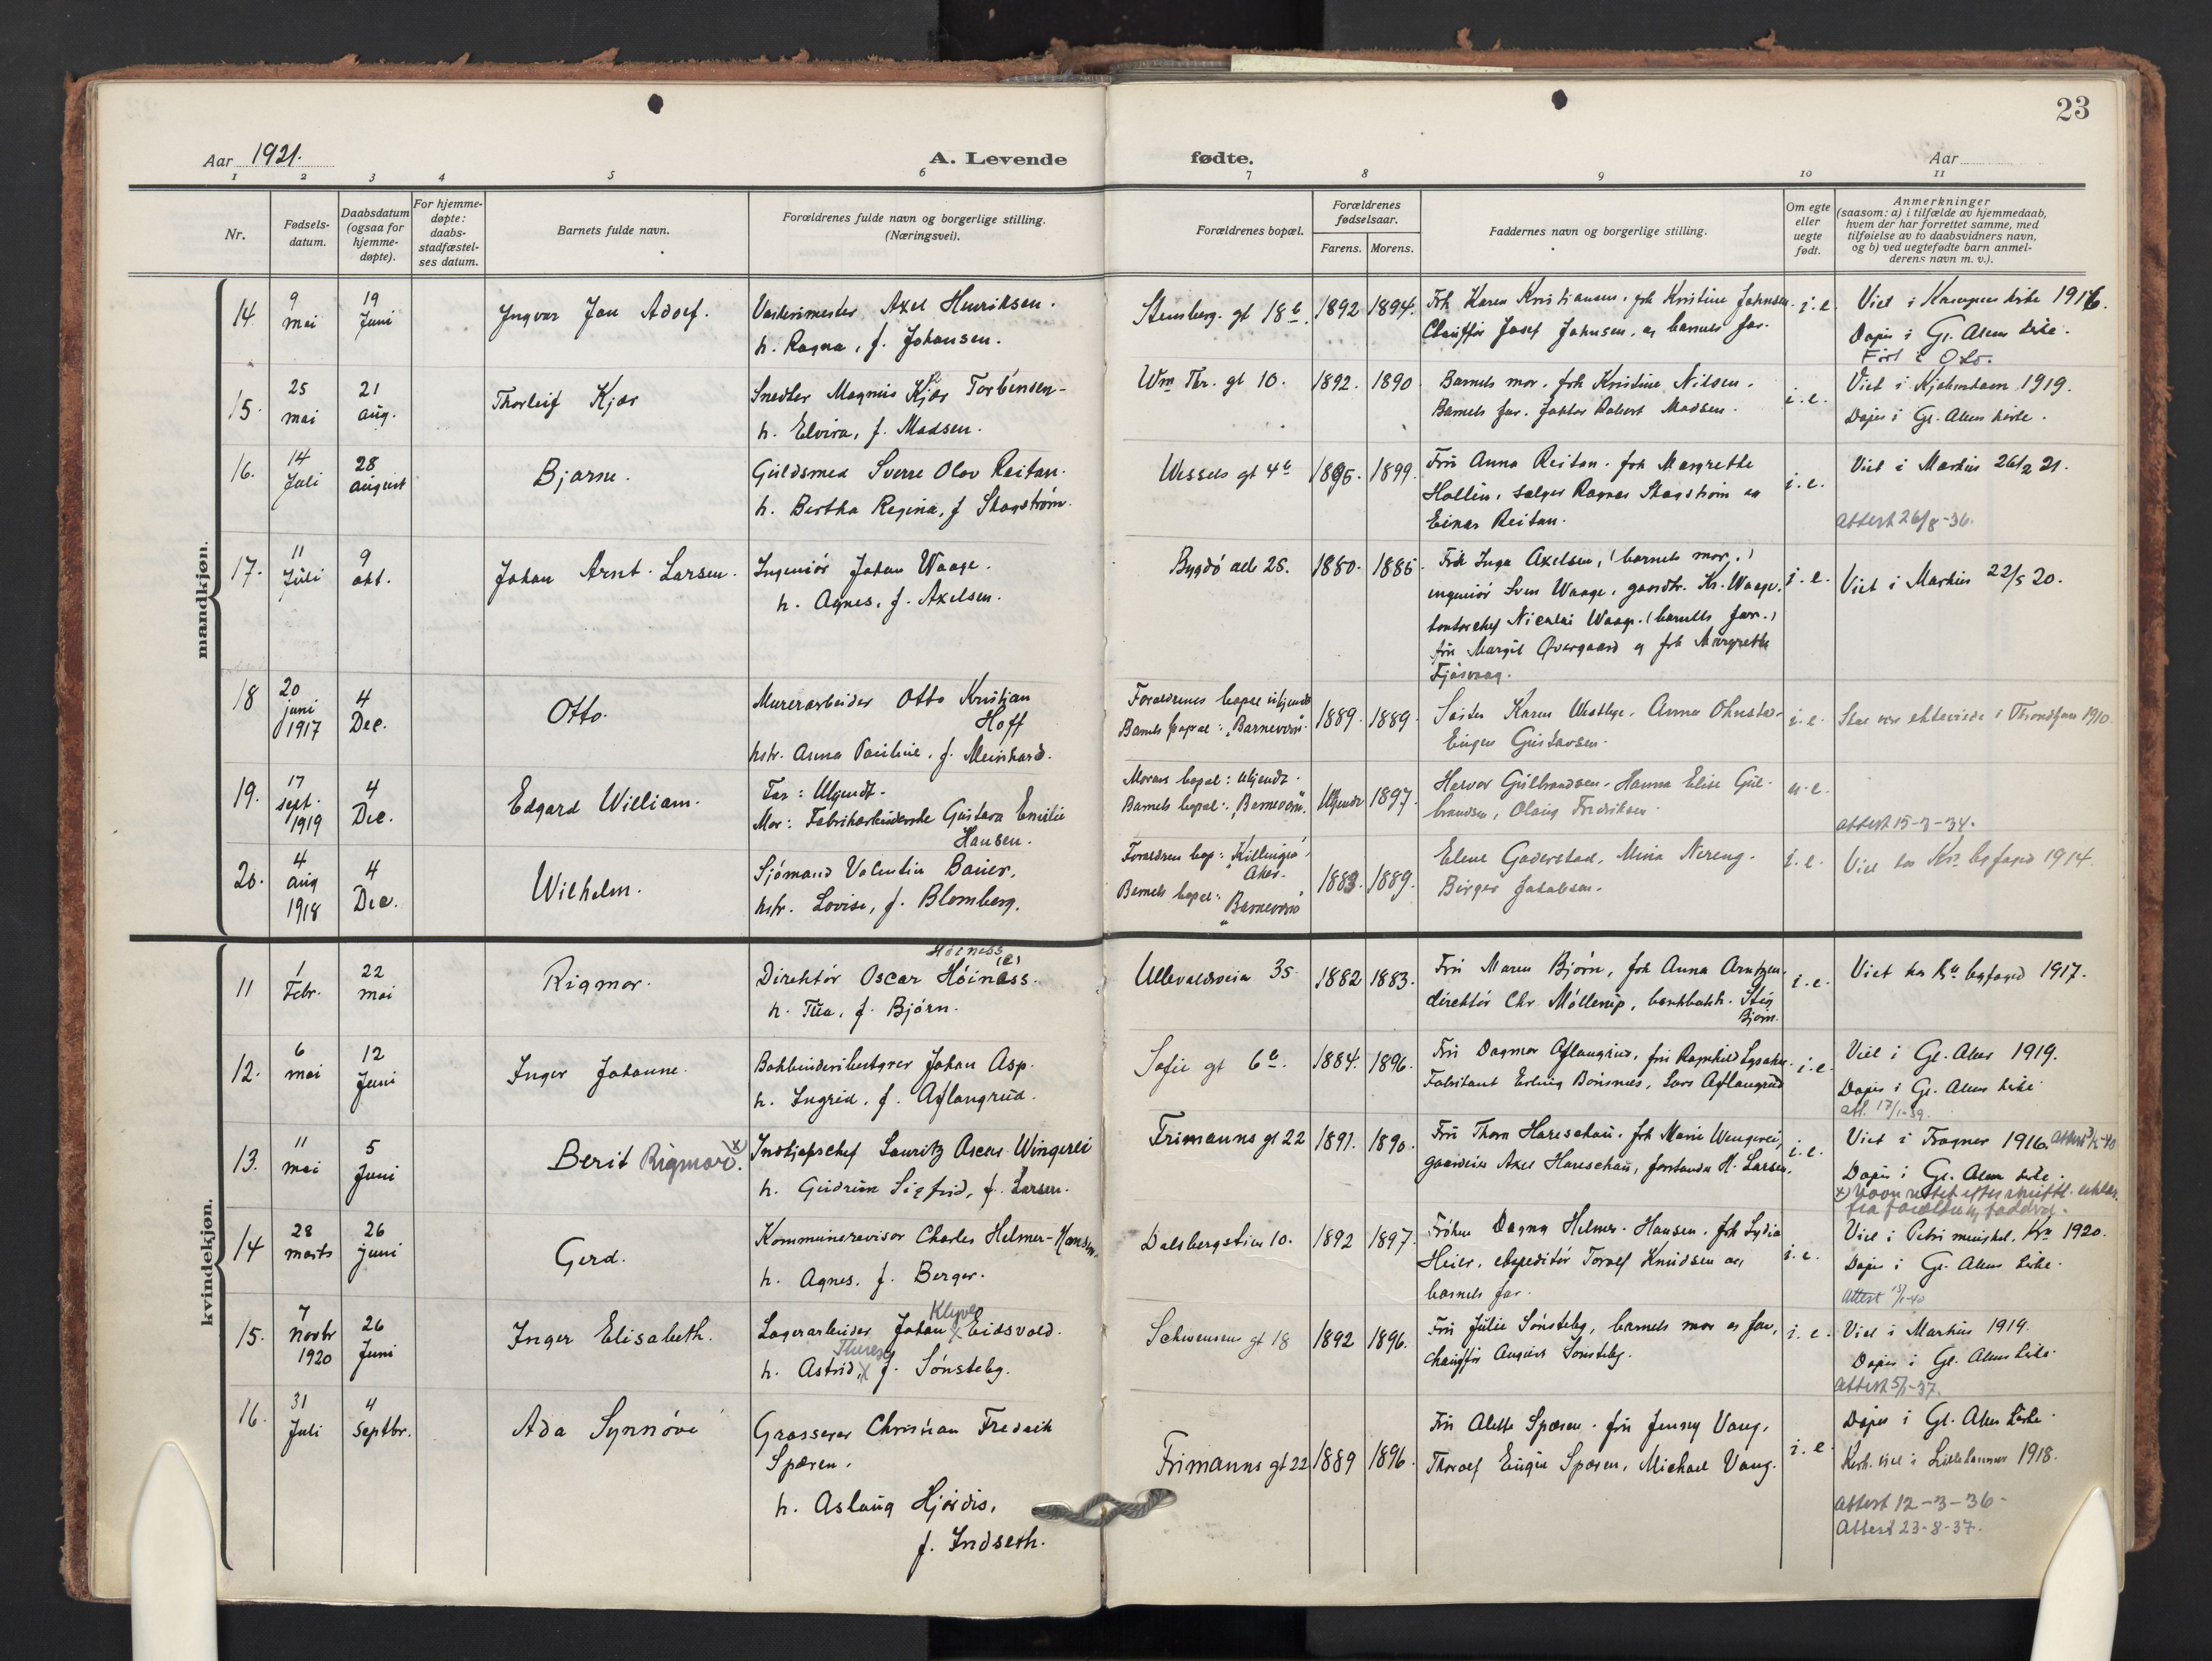 23
Aar 1921.
A. Levende fødte.
Aar
1 2 3 4 5 6 7 8 9 10 11
Nr.
Fødsels-
datum.
Daabsdatum
(ogsaa for
hjemme-
døpte).
For hjemme-
døpte:
daabs-
stadfæstel-
ses datum.
Barnets fulde navn.
Forældrenes fulde navn og borgerlige stilling.
(Næringsvei).
Forældrenes bopæl.
Forældrenes
fødselsaar.
Farens. Morens.
Faddernes navn og borgerlige stilling.
Om egte
eller
uegte
født.
Anmerkninger
(saasom: a) i tilfælde av hjemmedaab,
hvem der har forrettet samme, med
tilføielse av to daabsvidners navn,
og b) ved uegtefødte barn anmel-
derens navn m. v.).
mandkjøn.
14.
9
mai
19
Juni
Yngvar Jan Adolf.
Axel Henriksen.
h. Ragna, f. Johansen.
Stensberg. gt 18b.
1892 1894.
Frk Karen Kristiansen, frk Kristine Johnsen.
Chauffør Josef Johnsen, og barnets far.
i. e.
Viet i Kampen kirke 1916.
Døpt i Gl. Aker kirke.
Ført i Oslo.
15.
25
mai
21
aug.
Thorleif Kjær
Snedker Magnus Kjær Torbensen-
h. Elvira, f. Madsen.
Wm Thr. gt 10.
1892. 1890
Barnets mor, frk Kristine Nilsen.
Barnets far, faktor Robert Madsen.
i. e.
Viet i Kjøbenhavn 1919.
Døpt i Gl. Aker kirke.
16.
14
Juli
28
august
Bjarne.
Guldsmed Sverre Olov Reitan.
h. Bertha Regina, f. Skogstrøm.
Wessels gt 4b
1895. 1899.
Fru Anna Reitan. frk Margrethe
Hollin, sælger Ragnar Skogstrøm og
Einar Reitan.
i. e.
Viet i Markus 26/2 21.
Attest 26/8-36.
17.
11
Juli
9
okt.
Johan Arnt Larsen.
Ingeniør Johan Waage.
h. Agnes, f. Axelsen.
Bygdø allé 25.
1880. 1885.
Frk Inga Axelsen, (barnets mor,)
ingeniør Sven Waage, gaardbr. Kr. Waage,
kontorchef Nicolai Waage. (barnets far.)
fru Margit Overgaard og frk Margrethe
Fjøsvaag.
i. e.
Viet i Markus 22/5 20.
18
20
juni
1917
4
Dec.
Otto.
Murerarbeider Otto Kristjan
Hoff
hstr. Anna Pauline, f. Meinhard.
Forældrenes bopæl ukjendt
Barnets bopæl: "Barnevern".
1889. 1889.
Søster Karen Westbye. Anna
Eugen Gustavsen.
i. e.
Skal være ektviede i Trondhjem 1910.
19.
17
sept.
1919
4
Dec.
Edgard William.
Far: Ukjendt.
Mor: Fabrikarbeiderske Gustava Emilie
Hansen.
Morens bopæl: ukjendt.
Barnets bopæl: "Barnevern".
Ukjendt 1897.
Halvor Gulbrandsen, Hanna Elise Gul-
brandsen, Olaug Fredriksen.
u. e.
attest 15-3-34.
20.
4
aug
1918
4
Dec.
Wilhelm.
Sjømand Valentin Baier,
hstr. Lovise, f. Blomberg.
Forældrenes bop: "Killingen",
Aker.
Barnets bopæl: "Barnevern"
1883. 1889.
Elene Gaderstad, Mina Nereng.
Birger Jakobsen.
i. e.
Viet hos Kra. byfoged 1914.
kvindekjøn.
11
1
Febr.
22
mai
Rigmor.
Høiness
Direktør Oscar Høinæss. (e)
h. Tua, f. Bjørn.
Ullevaldsveien 35.
1882 1883.
Fru Maren Bjørn, frk Anna Arntzen.
direktør Chr. Møllerup, Stig
Bjørn.
i. e.
Viet hos Kra byfoged 1917.
12.
6
mai
12
Juni
Inger Johanne.
Bokbinderibestyrer Johan Asp.
h. Ingrid, f. Aslangrud.
Sofie gt 6b.
1884. 1896.
Fru Dagmar Aslangrud, fru Ragnhild Lysaker.
Fabrikant Erling Bonsnes, Lars Aslangrud
i. e.
Viet i Gl. Aker 1919.
Døpt i Gl. Aker kirke.
att. 17/1-39.
13.
11
mai
5
Juni
Berit Rigmor x).
Indkjøpschef Lauritz Oscar Wingerei
h. Gudrun Sigfrid, f. Larsen.
Frimanns gt 22
1891. 1890.
Fru Thora Hareschau, frk Marie Wengerei,
gaardeier Axel Hareschau, forstander H. Larsen.
i. e.
Viet i Frogner 1916.
Døpt i Gl. Aker kirke.
x) Navn rettet efter skriftl. erklær.
fra forældre og faddre.
14
28
marts
26
juni
Gerd.
Kommunerevisor Charles Helmer-Hansen.
h. Agnes. f. Berger.
Dalsbergstien 10.
1892 1897.
Frøken Dagny Helmer-Hansen, frk Lydia
Heier, ekspeditør Toralf Knudsen og
barnets far.
i. e.
Viet i Petri menighet, Kra 1920.
Døpt i Gl. Aker kirke.
15.
7
Novbr
1920
26
Juni
Inger Elisabeth.
Klyve
Lagerarbeider Johan x Eidsvold.
Therese
h. Astrid, x f. Sønsteby.
Schwensens gt 18
1892 1896.
Fru Julie Sønsteby, barnets mor og far,
chauffør August Sønsteby.
i. e.
Viet i Markus 1919.
Døpt i Gl. Aker kirke.
Attest 5/1-37.
16.
31
Juli
4
Septbr.
Ada Synnøve
Grosserer Christian Fredrik
Spæren.
h. Aslaug Hjørdis,
f. Indseth.
Frimanns gt 22
1889 1896.
Fru Alette Spæren. fru Jenny Vang,
Thoralf Eugen Spæren, Michael Vang.
i. e.
Døpt i Gl. Aker kirke.
Kirk. viet i Lillehammer 1918.
Attest 12-3-36-
Attest 23-8-37.